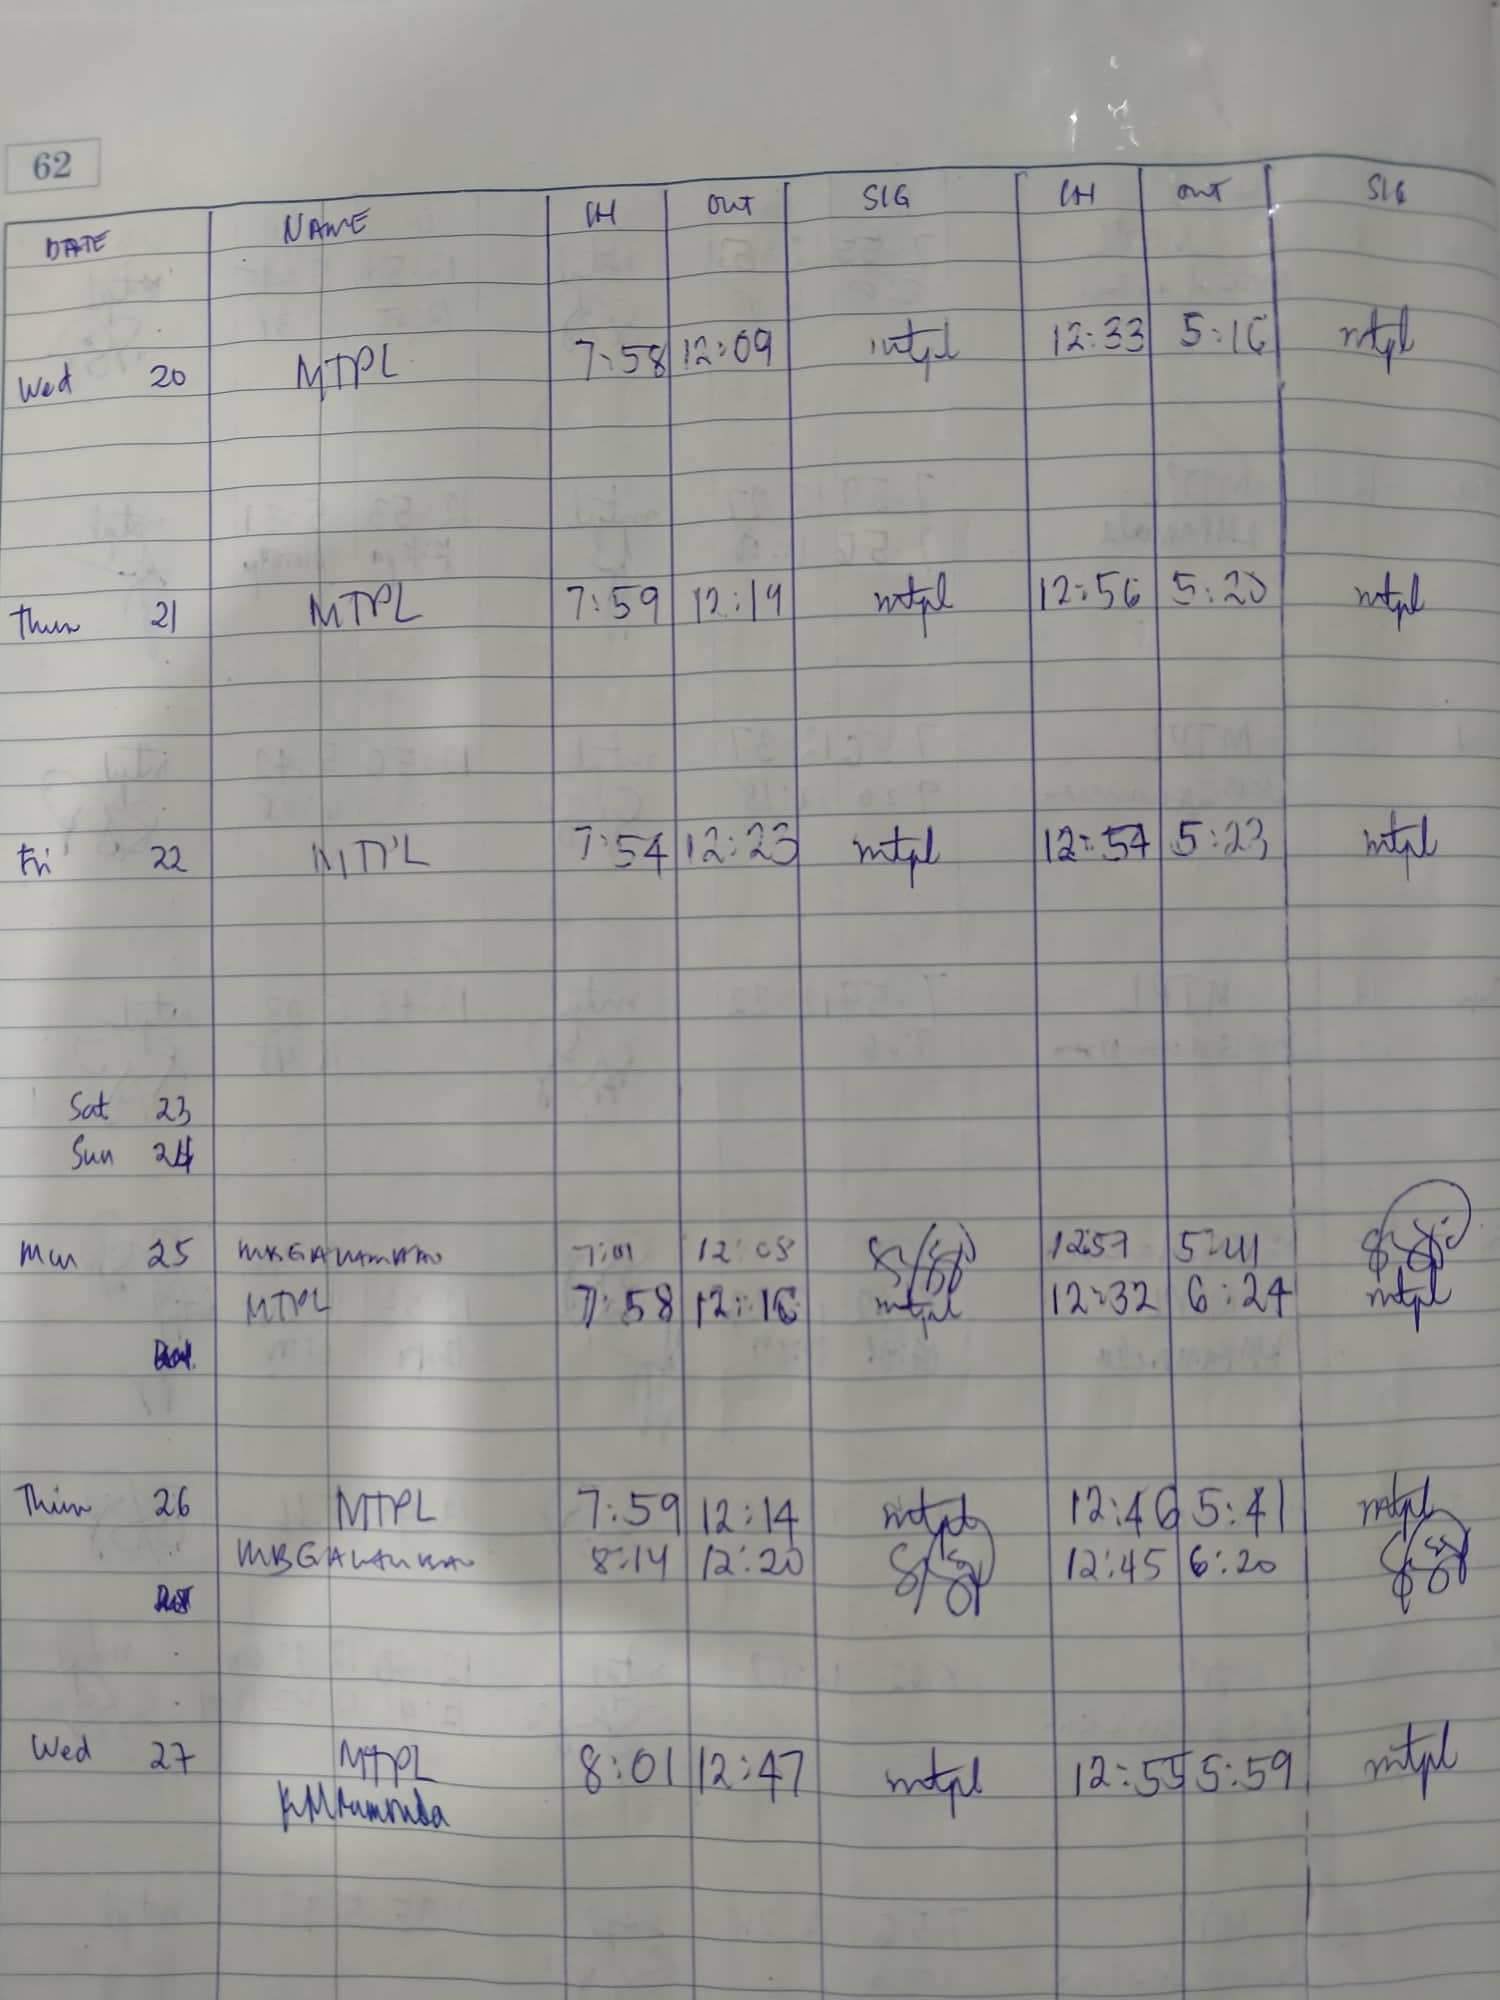 62
DATE NAME IN OUT SIG IN OUT SIG
Wed 20 MTPL 7:58 12:09 mtpl 12:33 5:16 mtpl
Thur 21 MTPL 7:59 12:19 mtpl 12:56 5:20 mtpl
Fri 22 MTPL 7:54 12:23 mtpl 12:54 5:23 mtpl
Sat 23
Sun 24
Mon 25 12:08 12:57 5:41
MTPL 7:58 12:16 mtpl 12:32 6:24 mtpl
26 MTPL 7:59 12:14 mtpl 12:46 5:41 mtpl
8:14 12:20 12:45 6:20
Wed 27 MTPL 8:01 12:47 mtpl 12:55 5:59 mtpl